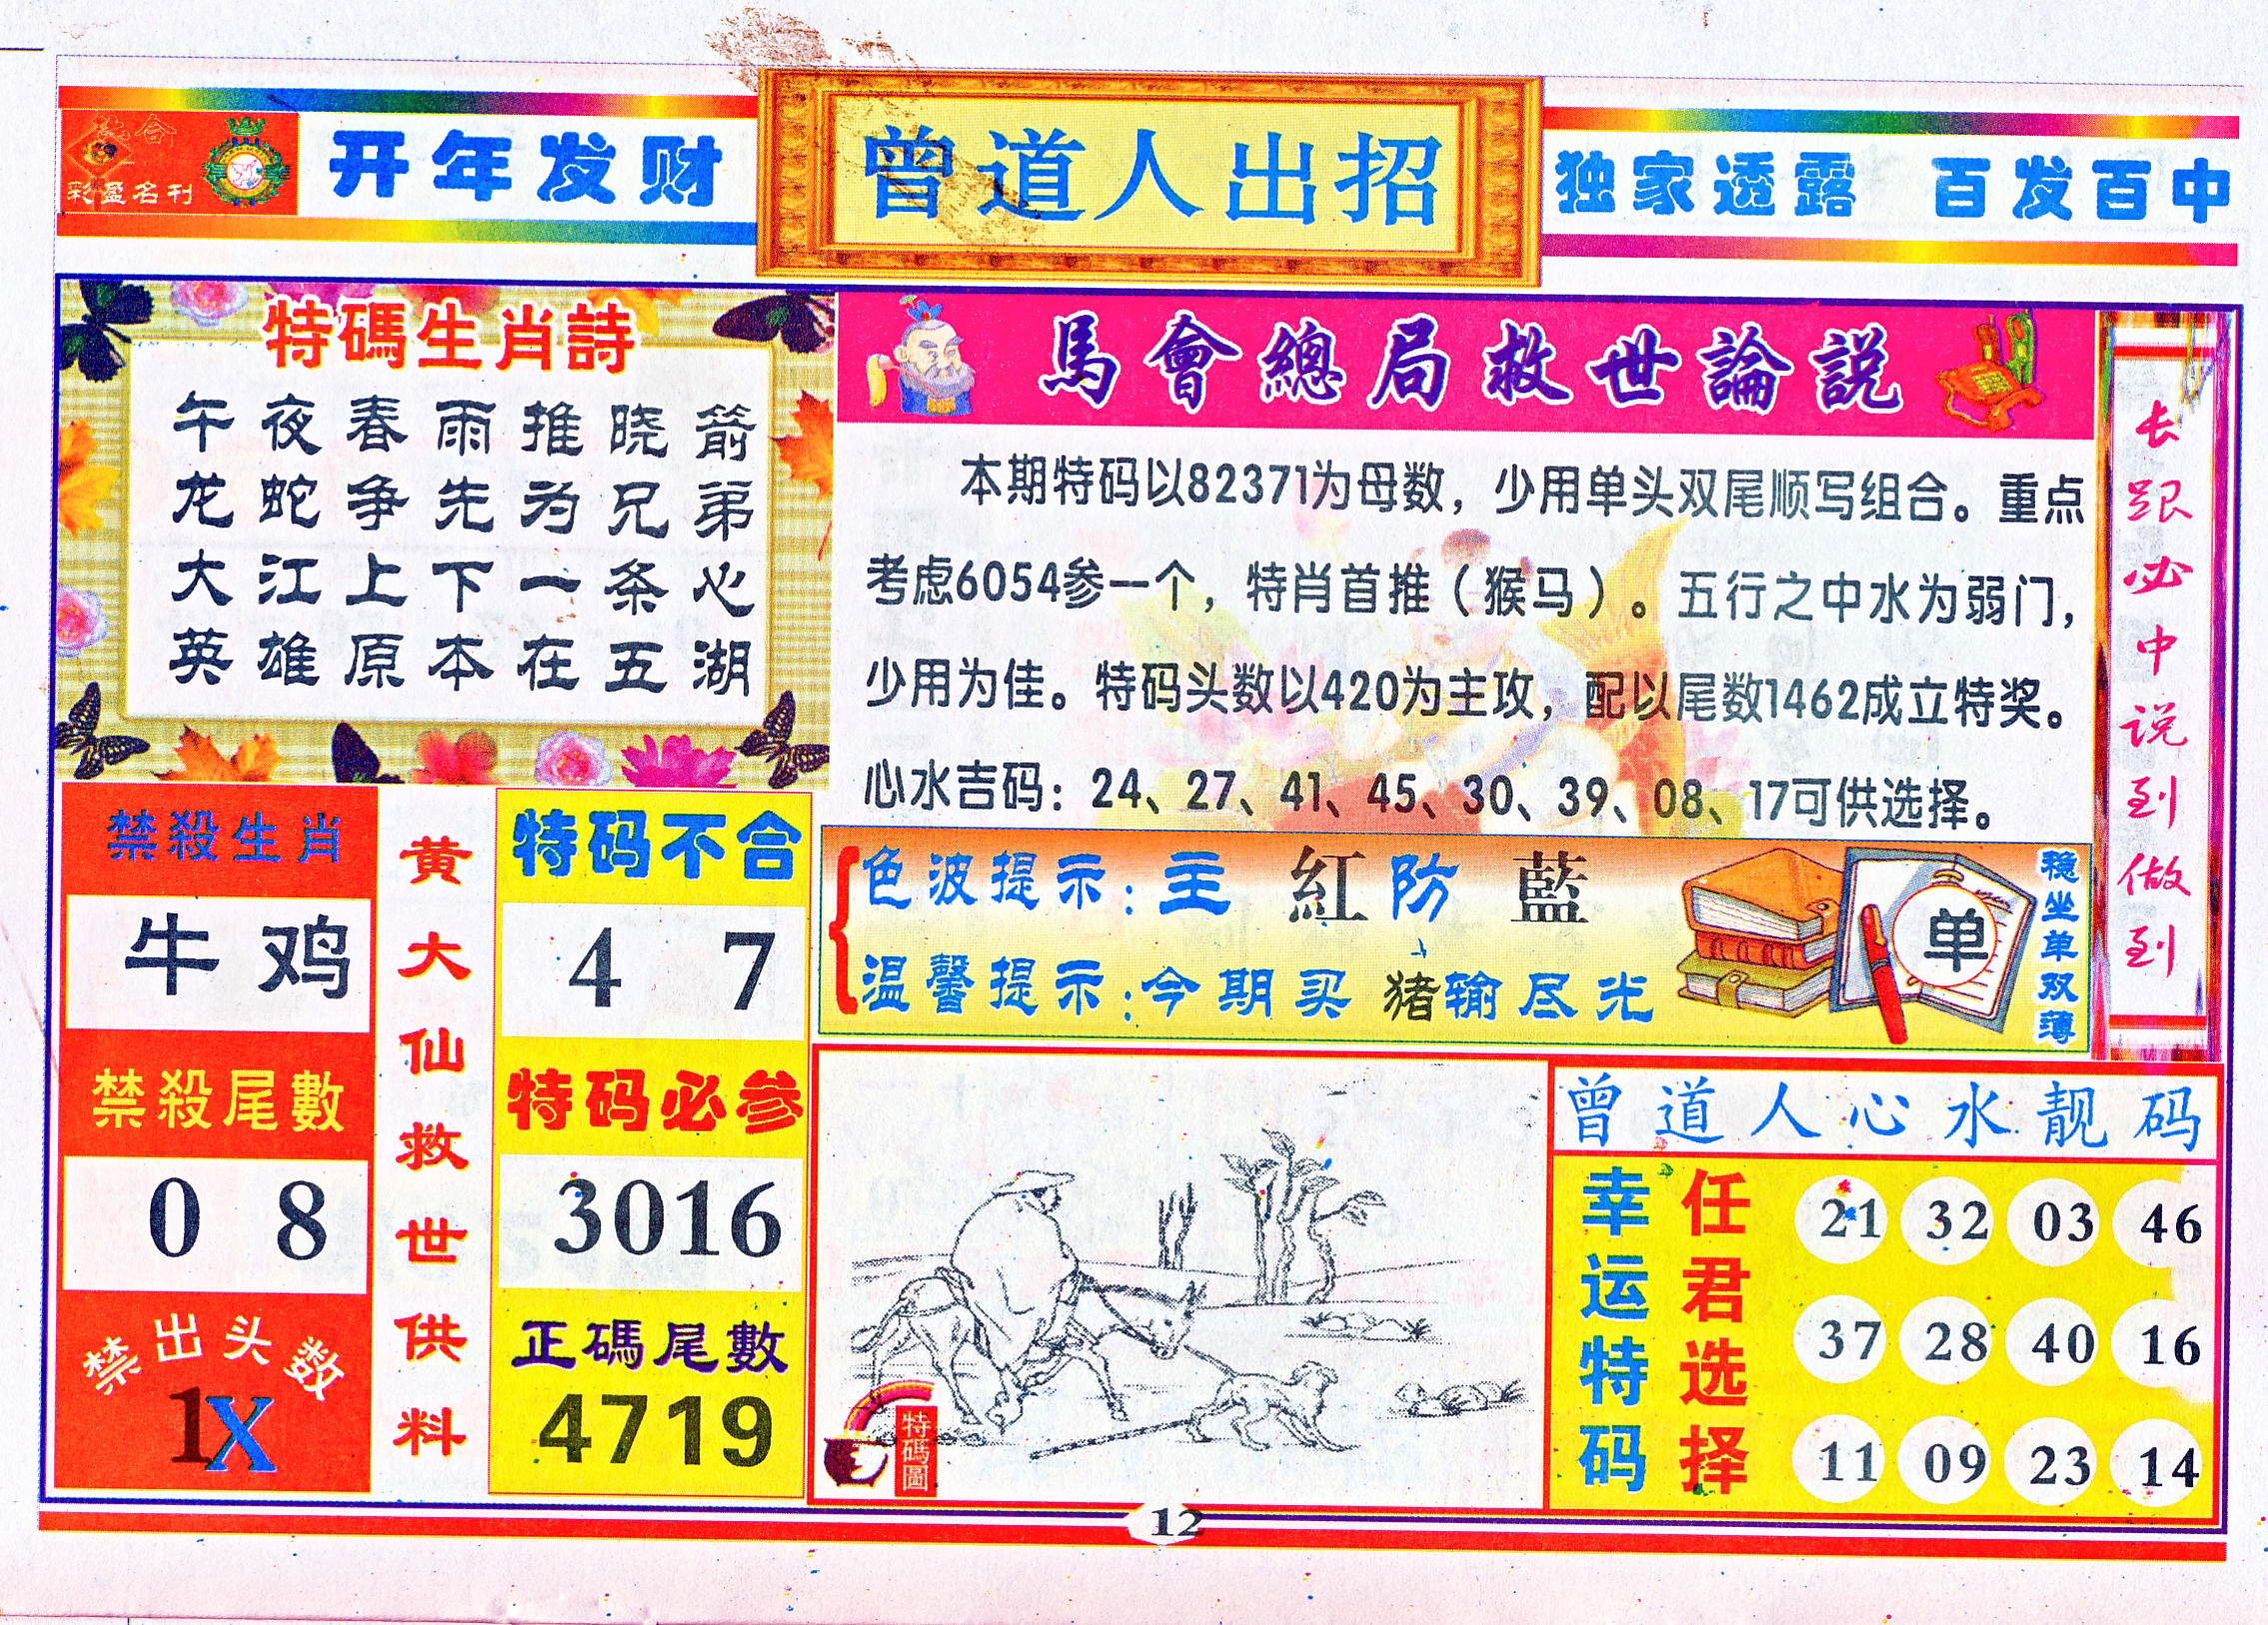 彩盈名刊
开年发财
曾道人出招
独家透露 百发百中
特碼生肖詩
午夜春雨推晓箭
龙蛇争先为兄弟
大江上下一条心
英雄原本在五湖
馬會總局救世論説
本期特码以82371为母数，少用单头双尾顺写组合。重点
考虑6054参一个，特肖首推（猴马）。五行之中水为弱门，
少用为佳。特码头数以420为主攻，配以尾数1462成立特奖。
心水吉码：24、27、41、45、30、39、08、17可供选择。
长跟必中说到做到
色波提示：主 紅 防 藍
温馨提示：今期买 猪输尽光
单
稳坐单双薄
禁殺生肖
牛 鸡
禁殺尾數
0 8
禁出头数
1X
黄大仙救世供料
特码不合
4 7
特码必参
3016
正碼尾數
4719
特碼圖
曾道人心水靓码
幸运特码
任君选择
21 32 03 46
37 28 40 16
11 09 23 14
12